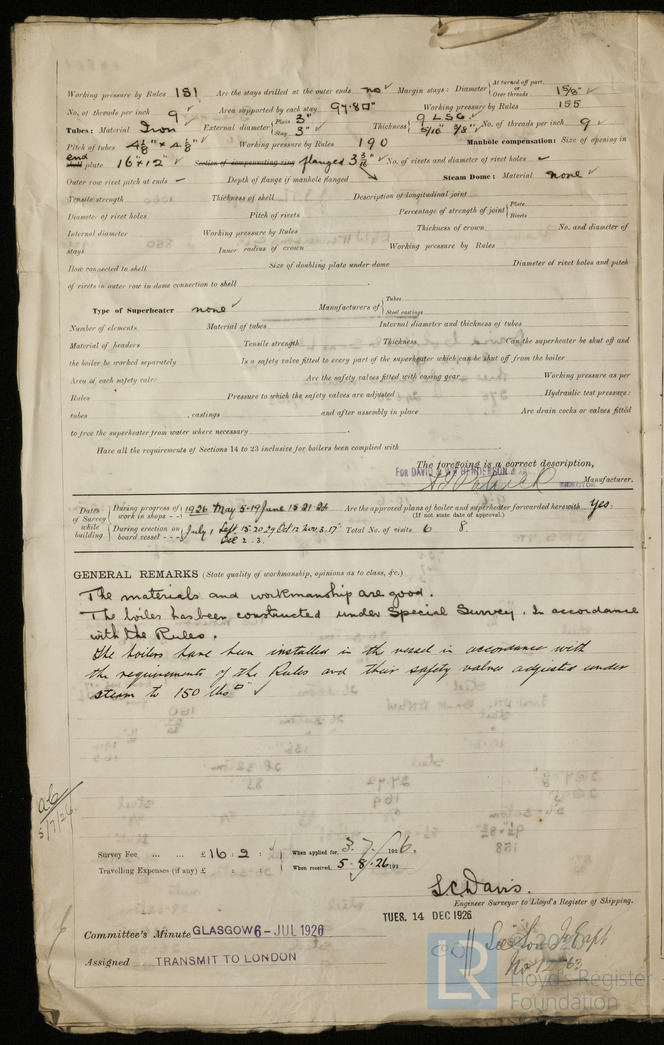 Working pressure by Rules 151 ✓ Are the stays drilled at the outer ends no ✓ Margin stays: Diameter { At turned off part, or Over threads 1 5/8" ✓
No. of threads per inch 9 ✓ Area supported by each stay 97.8□" Working pressure by Rules 155
Tubes: Material Iron ✓ External diameter { Plain 3" Stay 3" ✓ Thickness { 9 LSG 5/16" 3/8" ✓ No. of threads per inch 9 ✓
Pitch of tubes 4 1/8" × 4 1/8" ✓ Working pressure by Rules 190 Manhole compensation: Size of opening in
end shell plate 16" × 12" ✓ Section of compensating ring flanged No. of rivets and diameter of rivet holes
Outer row rivet pitch at ends Depth of flange if manhole flanged Steam Dome: Material none ✓
Tensile strength Thickness of shell Description of longitudinal joint
Diameter of rivet holes Pitch of rivets Percentage of strength of joint { Plate Rivets
Internal diameter Working pressure by Rules Thickness of crown No. and diameter of
stays Inner radius of crown Working pressure by Rules
How connected to shell Size of doubling plate under dome Diameter of rivet holes and pitch
of rivets in outer row in dome connection to shell
Type of Superheater none ✓ Manufacturers of { Tubes Steel castings
Number of elements Material of tubes Internal diameter and thickness of tubes
Material of headers Tensile strength Thickness Can the superheater be shut off and
the boiler be worked separately Is a safety valve fitted to every part of the superheater which can be shut off from the boiler
Area of each safety valve Are the safety valves fitted with easing gear Working pressure as per
Rules Pressure to which the safety valves are adjusted Hydraulic test pressure:
tubes , castings and after assembly in place Are drain cocks or valves fitted
to free the superheater from water where necessary
Have all the requirements of Sections 14 to 23 inclusive for boilers been complied with
The foregoing is a correct description,
FOR DAVID & HENDERSON &
Manufacturer.
Dates of Survey while building { During progress of work in shops - - 1926 May 5.19 June 15.21.24 Are the approved plans of boiler and superheater forwarded herewith Yes.
(If not state date of approval.)
During erection on board vessel - - - July 1 Sept 15.20.29 Oct 12 Nov 3.17 Dec 2.3. Total No. of visits 6 8
GENERAL REMARKS (State quality of workmanship, opinions as to class, &c.)
The materials and workmanship are good.
The boiler has been constructed under Special Survey. In accordance
with the Rules.
The boilers have been installed in the vessel in accordance with
the requirements of the Rules and their safety valves adjusted under
steam to 150 lbs □" ✓
5/7/26.
Survey Fee ... ... £ 16 : 2 : When applied for, 3.7.1926.
Travelling Expenses (if any) £ : : When received, 5.8.26 19
S.C. Davis.
Engineer Surveyor to Lloyd's Register of Shipping.
TUES. 14 DEC 1926
Committee's Minute GLASGOW 6 - JUL 1926
Assigned TRANSMIT TO LONDON
LR
© 2020
Lloyd's Register
Foundation